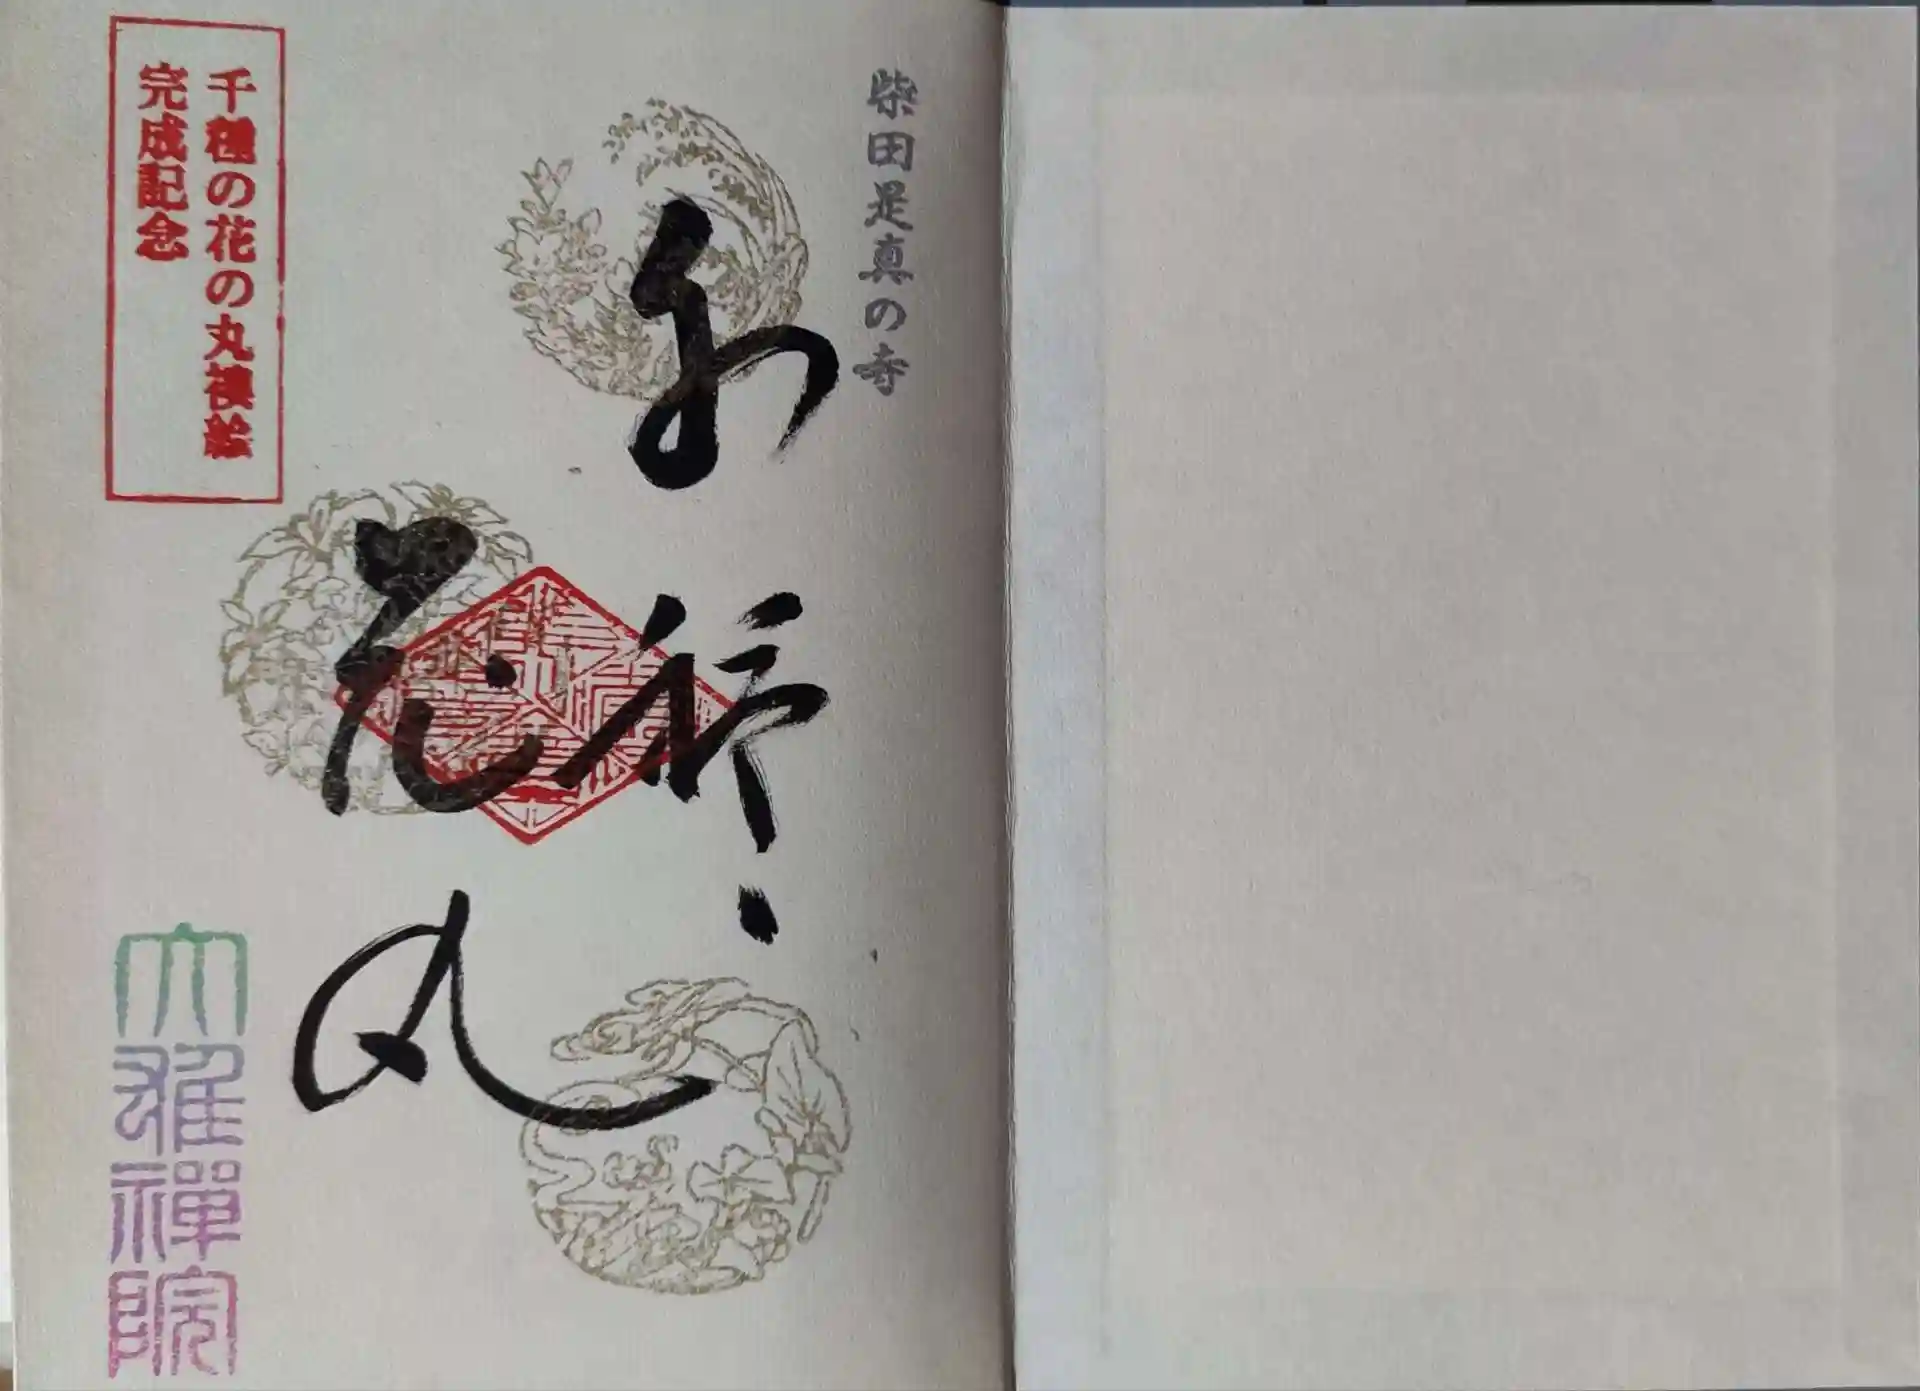 柴田是真の寺
花丸
千種の花の丸襖絵
完成記念
大雄禪院